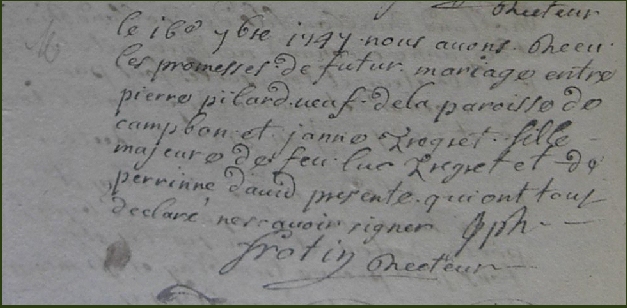 Recteur
le 16e 7bre 1747 nous avons Receu
les promesses de futur mariage entre
pierre pilard veuf de la paroisse de
campbon et janne fille
majeure de feu luc et de
perrinne david presente qui ont tous
declaré ne scavoir signer Jph
frotin Recteur